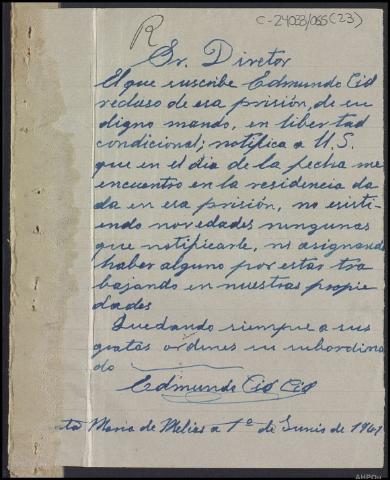 C-24033/055(23)
R
Sr. Diretor
El que suscribe Edmundo Cid
recluso de esa prisión, de su
digno mando, en libertad
condicional; notifica a U.S.
que en el dia de la fecha me
encuentro en la residencia da
da en esa prisión, no esisti-
endo novedades ningunas
que notificarle, ni asignando
haber alguno por estar tra
bajando en nuestras propie
dades
Quedando siempre a sus
gratas ordenes su subordina
do
Edmundo Cid Cid
ta Maria de Melias a 1º de Junis de 1941
AHPOu